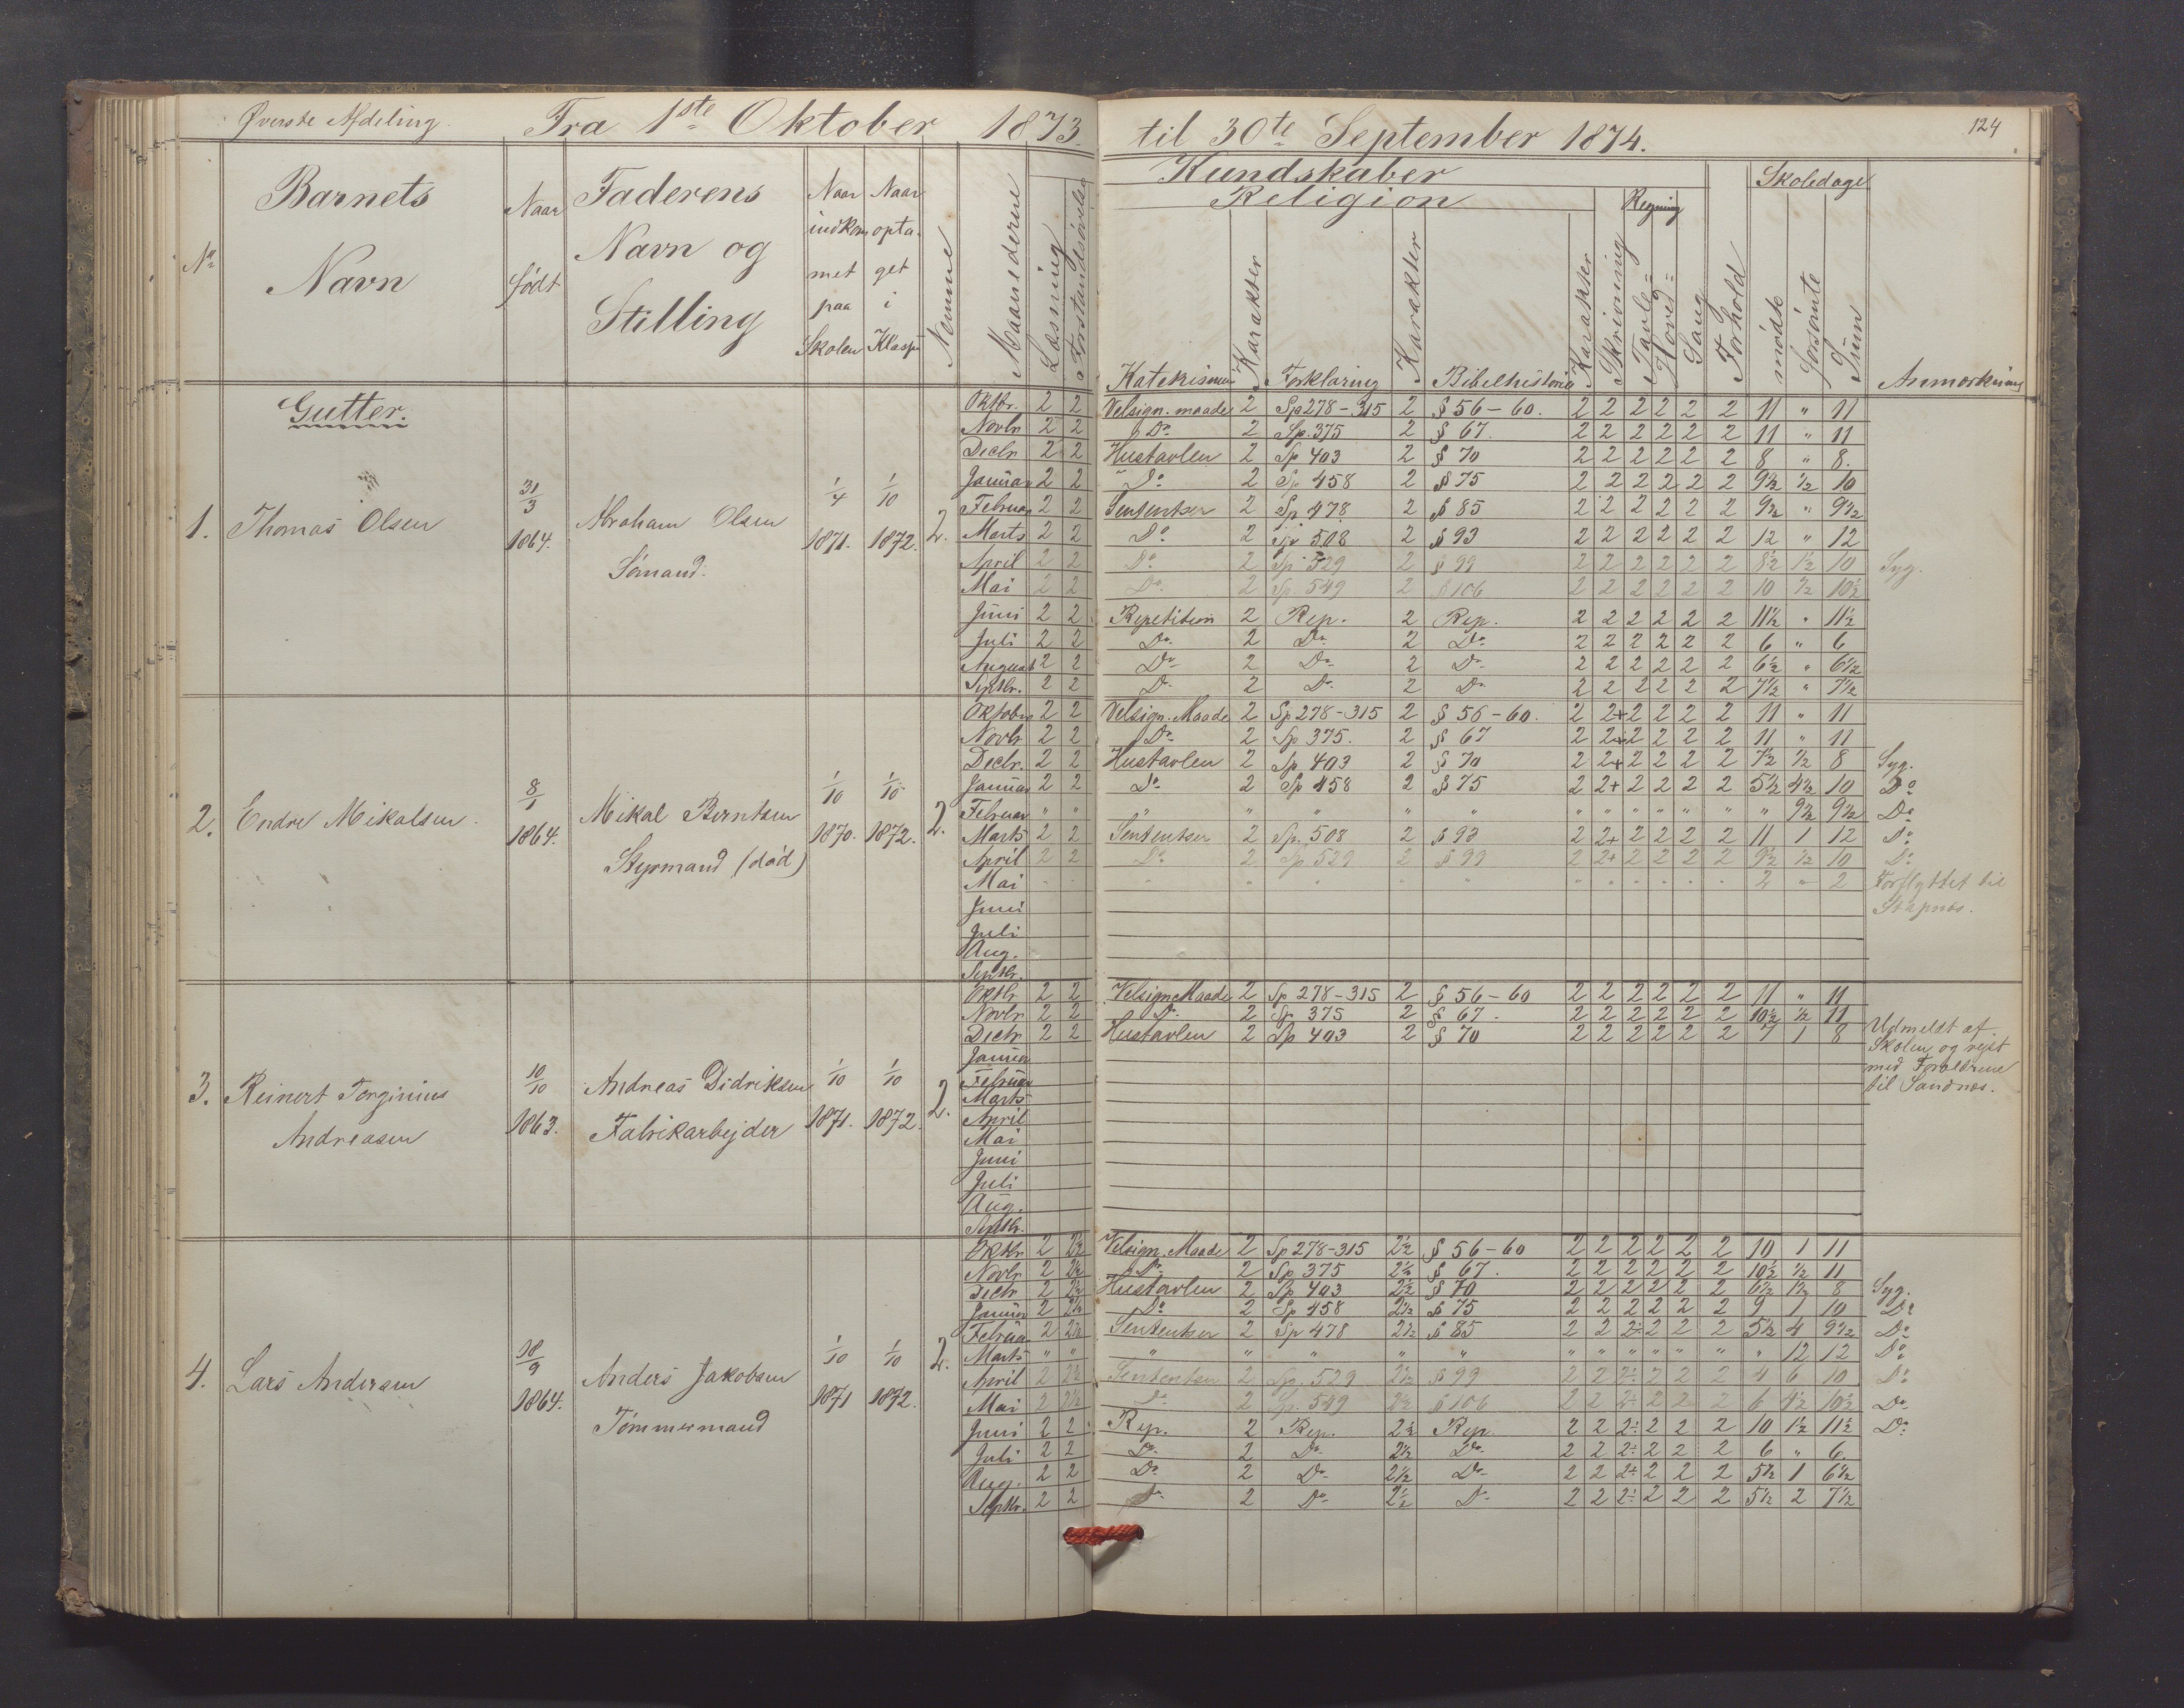 Øverste Afdeling. Fra 1ste Oktober 1873. til 30te September 1874. 124
No
Barnets Navn
Naar født
Faderens Navn og Stilling
Naar indkommet paa Skolen
Naar optaget i Klassen
Nemme
Maanederne
Læsning
Forstandsøvelse
Kundskaber
Religion
Katekismus
Karakter
Forklaring
Karakter
Bibelhistorie
Karakter
Skrivning
Regning
Tavle=
Hoved=
Sang
Forhold
Skoledage
mødte
forsømte
Sum
Anmærkning
Gutter.
1. Thomas Olsen 31/3 1864. Abraham Olsen Sømand. 1/4 1871. 1/10 1872. 2.
Oktbr. 2 2 Velsign. maade 2 Sp 278-315 2 § 56-60. 2 2 2 2 2 2 11 " 11
Novbr 2 2 Do 2 Sp. 375 2 § 67. 2 2 2 2 2 2 11 " 11
Decbr 2 2 Hustavlen 2 Sp 403 2 § 70 2 2 2 2 2 2 8 " 8.
Januar 2 2 Do 2 Sp 458 2 § 75 2 2 2 2 2 2 9½ ½ 10
Februar 2 2 Sentenser 2 Sp 478 2 § 85 2 2 2 2 2 2 9½ " 9½
Marts 2 2 Do 2 Sp 508 2 § 93 2 2 2 2 2 2 12 " 12
April 2 2 Do 2 Sp 529 2 § 99 2 2 2 2 2 2 8½ 1½ 10 Syg.
Mai 2 2 Do. 2 Sp 549 2 § 106 2 2 2 2 2 2 10 ½ 10½
Juni 2 2 Repetition 2 Rep. 2 Rep. 2 2 2 2 2 2 11½ " 11½
Juli 2 2 Do. 2 Do. 2 Do. 2 2 2 2 2 2 6 " 6
August 2 2 Do. 2 Do. 2 Do. 2 2 2 2 2 2 6½ " 6½
Septbr. 2 2 Do. 2 Do. 2 Do. 2 2 2 2 2 2 7½ " 7½
2. Endre Mikalsen. 8/1 1864. Mikal Berntsen Styrmand (død) 1/10 1870. 1/10 1872. 2.
Oktober 2 2 Velsign. Maade 2 Sp 278-315 2 § 56-60. 2 2+ 2 2 2 2 11 " 11
Novbr 2 2 Do. 2 Sp 375. 2 § 67 2 2+ 2 2 2 2 11 " 11
Decbr. 2 2 Hustavlen 2 Sp 403 2 § 70 2 2+ 2 2 2 2 7½ ½ 8 Syg.
Januar 2 2 Do 2 Sp 458 2 § 75 2 2+ 2 2 2 2 5½ 4½ 10 Do
Februar " " " " " " " " " " " " " " 9½ 9½ Do
Marts 2 2 Sentenser 2 Sp. 508 2 § 93 2 2+ 2 2 2 2 11 1 12 Do
April 2 2 Do 2 Sp 529 2 § 99 2 2+ 2 2 2 2 9½ ½ 10 Do
Mai " " " " " " " " " " " " " 2 " 2 Forflyttet til
Juni Stapnæs.
Juli
Aug.
Septbr.
3. Reinert Torginius Andreasen 10/10 1863. Andreas Didriksen Fabrikarbejder 1/10 1871. 1/10 1872. 2.
Oktbr 2 2 Velsign Maade 2 Sp 278-315 2 § 56-60 2 2 2 2 2 2 11 " 11
Novbr 2 2 Do. 2 Sp 375 2 § 67. 2 2 2 2 2 2 10½ ½ 11
Decbr 2 2 Hustavlen 2 Sp 403 2 § 70 2 2 2 2 2 2 7 1 8 Udmeldt af Skolen og rejst med Forældrene til Sandnæs.
Januar
Februar
Marts
April
Mai
Juni
Juli
Aug.
Septbr.
4. Lars Andersen 18/9 1864. Anders Jakobsen Tømmermand 1/10 1871 1/10 1872. 2.
Oktbr 2 2½ Velsign. Maade 2 Sp 278-315 2½ § 56-60 2 2 2 2 2 2 10 1 11
Novbr 2 2½ Do. 2 Sp 375 2½ § 67. 2 2 2 2 2 2 10½ ½ 11
Decbr 2 2½ Hustavlen 2 Sp 403 2½ § 70 2 2 2 2 2 2 6½ 1½ 8 Syg.
Januar 2 2½ Do 2 Sp 458 2½ § 75 2 2 2 2 2 2 9 1 10 Do
Februar 2 2½ Sentenser 2 Sp 478 2½ § 85 2 2 2÷ 2 2 2 5½ 4 9½ Do
Marts " " " " " " " " " " " " " " 12 12 Do
April 2 2½ Sentenser 2 Sp. 529 2½ § 99 2 2 2÷ 2 2 2 4 6 10 Do
Mai 2 2½ Do 2 Sp. 549 2½ § 106 2 2 2÷ 2 2 2 6 4½ 10½ Do
Juni 2 2 Rep. 2 Rep. 2½ Rep. 2 2 2÷ 2 2 2 10 1½ 11½ Do
Juli 2 2 Do. 2 Do. 2½ Do. 2 2 2÷ 2 2 2 6 " 6.
Aug. 2 2 Do. 2 Do. 2½ Do. 2 2 2÷ 2 2 2 5½ 1 6½
Septbr. 2 2 Do. 2 Do. 2½ Do. 2 2 2÷ 2 2 2 5½ 2 7½